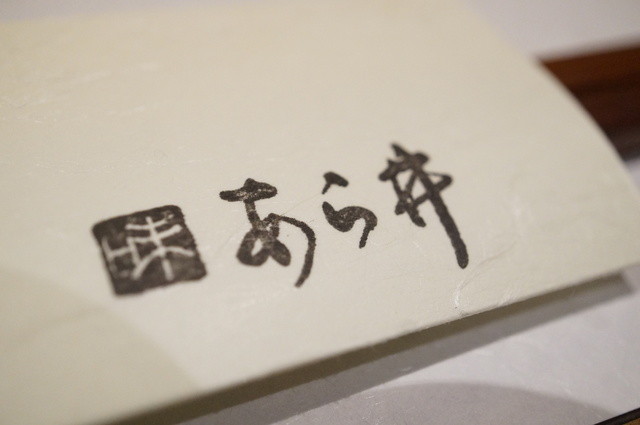 あら井